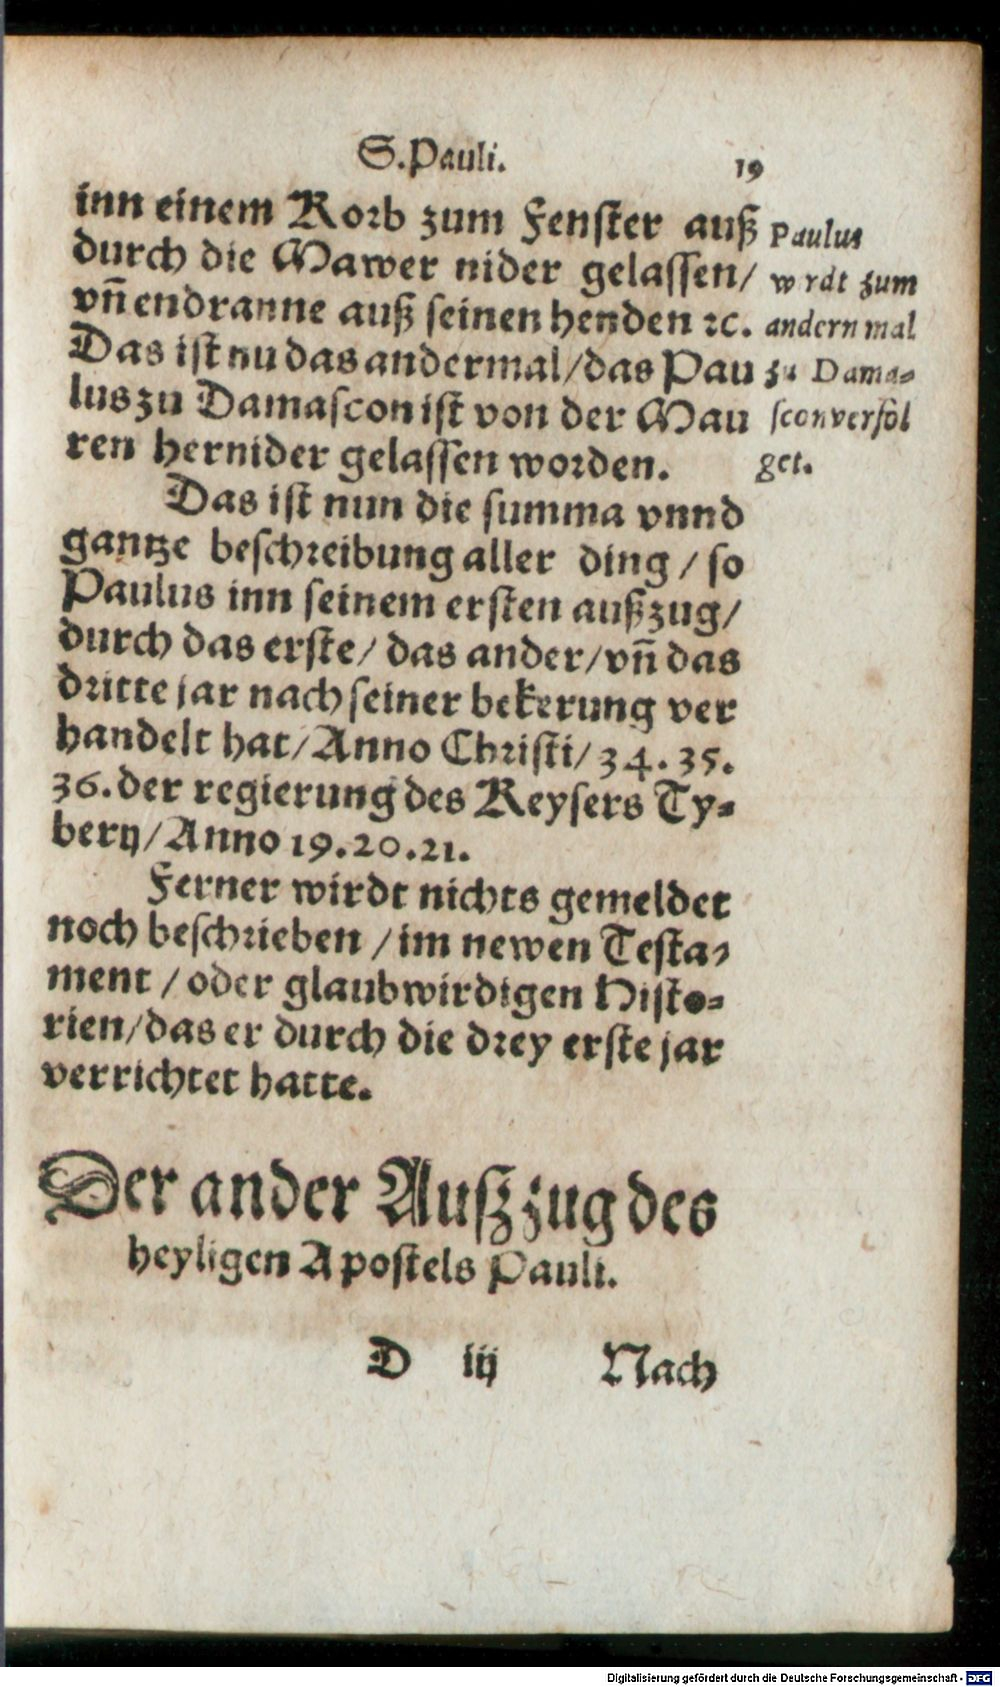 S. Pauli.
19
inn einem Korb zum Fenster auß
durch die Mawer nider gelassen/
vñ endranne auß seinen henden ꝛc.
Das ist nu das andermal/das Pau
lus zu Damascon ist von der Mau
ren hernider gelassen worden.
Paulus
wrdt zum
andern mal
zu Dama-
scon verföl
get.
Das ist nun die summa vnnd
gantze beschreibung aller ding / so
Paulus inn seinem ersten außzug/
durch das erste/ das ander/vñ das
dritte jar nach seiner bekerung ver
handelt hat/Anno Christi/ 34. 35.
36. der regierung des Keysers Ty-
berij/Anno 19.20.21.
Ferner wirdt nichts gemeldet
noch beschrieben / im newen Testa-
ment / oder glaubwirdigen Histo-
rien/das er durch die drey erste jar
verrichtet hatte.
Der ander Außzug des
heyligen Apostels Pauli.
D iij Nach
Digitalisierung gefördert durch die Deutsche Forschungsgemeinschaft - DFG